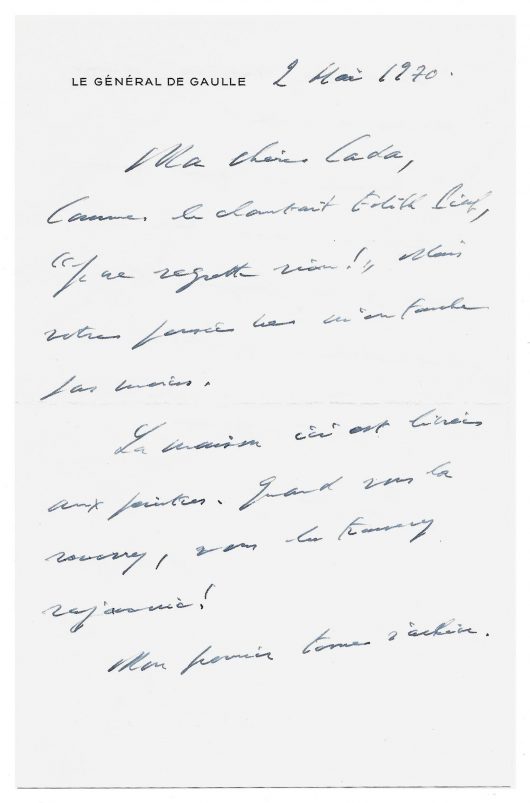 LE GÉNÉRAL DE GAULLE 2 Mai 1970.
Ma chère Cada,
Comme le chantait Edith Piaf,
“Je ne regrette rien!„ Mais
votre pensée ne m'en touche
pas moins.
La maison ici est livrée
aux peintres. Quand vous la
reverrez, vous la trouverez
rajeunie!
Mon premier tome s'achève.